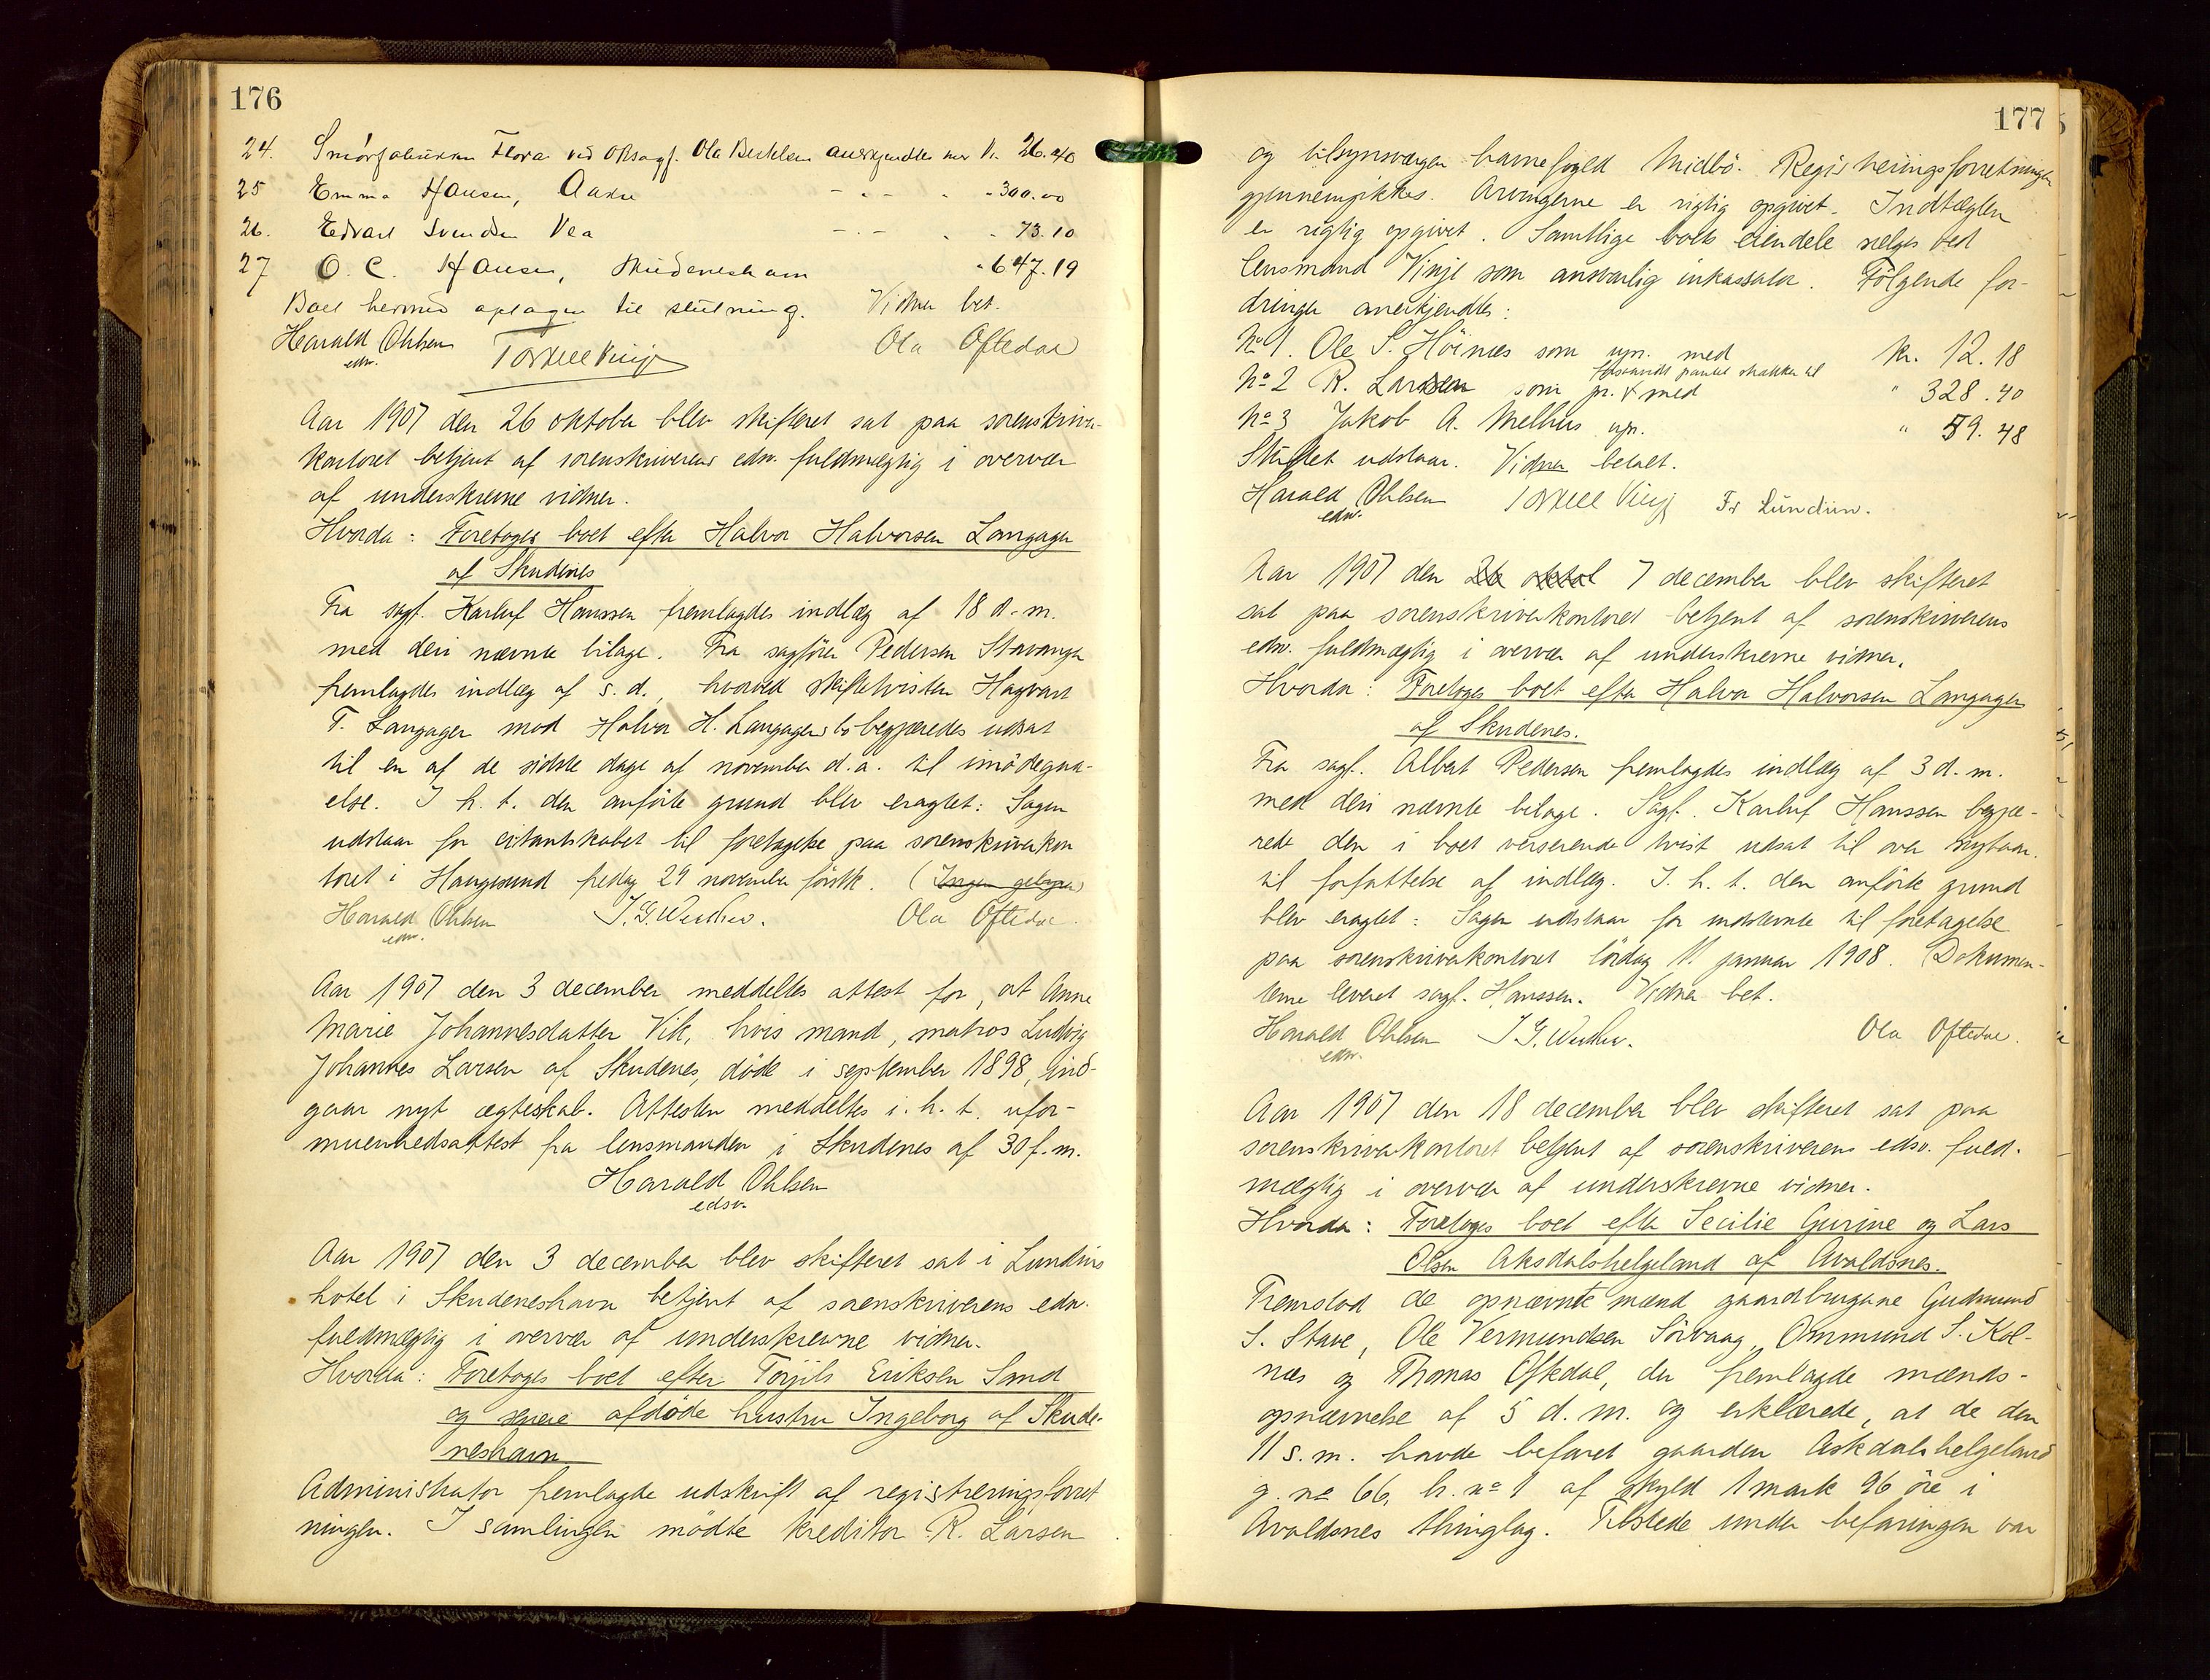 176
24. Smörfabrikken Flora ved oRsagf. Ola Bertelsen anerkjendtes med Kr. 26.40
25 Emma Hansen, Aakre - - - - 300.00
26. Edvart Svendsen Vea - - - - 73.10
27 O. C. Hansen, Skudeneshavn - 647.19
Boet hermed optagen til slutning. Vidner bet.
Harald Ohlsen Torkell Vinje Ola Oftedal
edsv.
Aar 1907 den 26 oktober blev skifteret sat paa sorenskriver-
kontoret betjent af sorenskriverens edsv. fuldmægtig i overvær
af underskrevne vidner.
Hvorda: Foretoges boet efter Halvor Halvorsen Langager
af Skudenes
Fra sagf. Karluf Hanssen fremlagdes indlæg af 18 d. m.
med deri nævnte bilage. Fra sagfører Pedersen Stavanger
fremlagdes indlæg af s. d., hvorved skiftetvisten Hagbart
T. Langager mod Halvor H. Langagers bo begjæredes udsat
til en af de sidste dage af november d. a. til imødegaa-
else. I h. t. den anførte grund blev eragtet: Sagen
udstaar for citantskabet til foretagelse paa sorenskriverkon
toret i Haugesund fredag 29 november førstk. (Ingen gebyr)
Harald Ohlsen Ola Oftedal
edsv.
Aar 1907 den 3 december meddeltes attest for, at Anne
Marie Johannesdatter Vik, hvis mand, matros Ludvig
Johannes Larsen af Skudenes, døde i september 1898, ind-
gaar nyt ægteskab. Attesten meddeltes i. h. t. ufor-
muenhedsattest fra lensmanden i Skudenes af 30 f. m.
Harald Ohlsen
edsv.
Aar 1907 den 3 december blev skifteret sat i Lundins
hotel i Skudeneshavn betjent af sorenskriverens edsv.
fuldmægtig i overvær af underskrevne vidner.
Hvorda: Foretoges boet efter Torjils Eriksen Sand
og senere afdøde hustru Ingeborg af Skude-
neshavn
Administrator fremlagde udskrift af registreringsforret
ningen. I samlingen mødte kreditor R. Larsen
177
og tilsynsværgen havnefoged Midbö. Registreringsforretningen
gjennemgikkes. Arvingerne er rigtig opgivet. Indtægten
er rigtig opgivet. Samtlige boets eiendele sælges ved
lensmand Vinje som ansvarlig inkassator. Følgende for-
dringer anerkjendtes:
No 1. Ole S. Höines som upr. med kr. 12.18
forsaavidt pantet strækker til
No 2 R. Larsen som pr. x med " 328.40
No 3 Jakob A. Melhus upr. " 59.48
Skiftet udstaar. Vidner betalt.
Harald Ohlsen Torkell Vinje Fr Lundin.
edsv.
Aar 1907 den 26 oktob 7 december blev skifteret
sat paa sorenskriverkontoret betjent af sorenskriverens
edsv. fuldmægtig i overvær af underskrevne vidner.
Hvorda: Foretoges boet efter Halvor Halvorsen Langager
af Skudenes.
Fra sagf. Albert Pedersen fremlagdes indlæg af 3 d. m.
med deri nævnte bilage. Sagf. Karluf Hanssen begjæ-
rede den i boet verserende tvist udsat til over nytaar.
til forfattelse af indlæg. I. h. t. den anførte grund
blev eragtet: Sagen udstaar for indstevnte til foretagelse
paa sorenskriverkontoret lördag 11 januar 1908. Dokumen-
terne leveret sagf. Hanssen. Vidner bet.
Harald Ohlsen Ola Oftedal.
edsv.
Aar 1907 den 18 december blev skifteret sat paa
sorenskriverkontoret betjent af sorenskriverens edsv. fuld-
mægtig i overvær af underskrevne vidner.
Hvorda: Foretoges boet efter Secilie Gurine og Lars
Olsen Aksdalshelgeland af Avaldsnes.
Fremstod de opnævnte mænd gaardbrugerne Gudmund
S. Stave, Ole Vermundsen Sörvaag, Ommund S. Kol-
næs og Thomas Oftedal, der fremlagde mænds-
opnævnelse af 5 d. m. og erklærede, at de den
11 s. m. havde befaret gaarden Askdalshelgeland
g. no 66, b. no 1 af skyld 1 mark 96 øre i
Avaldsnes thinglag. Tilstede under befaringen var